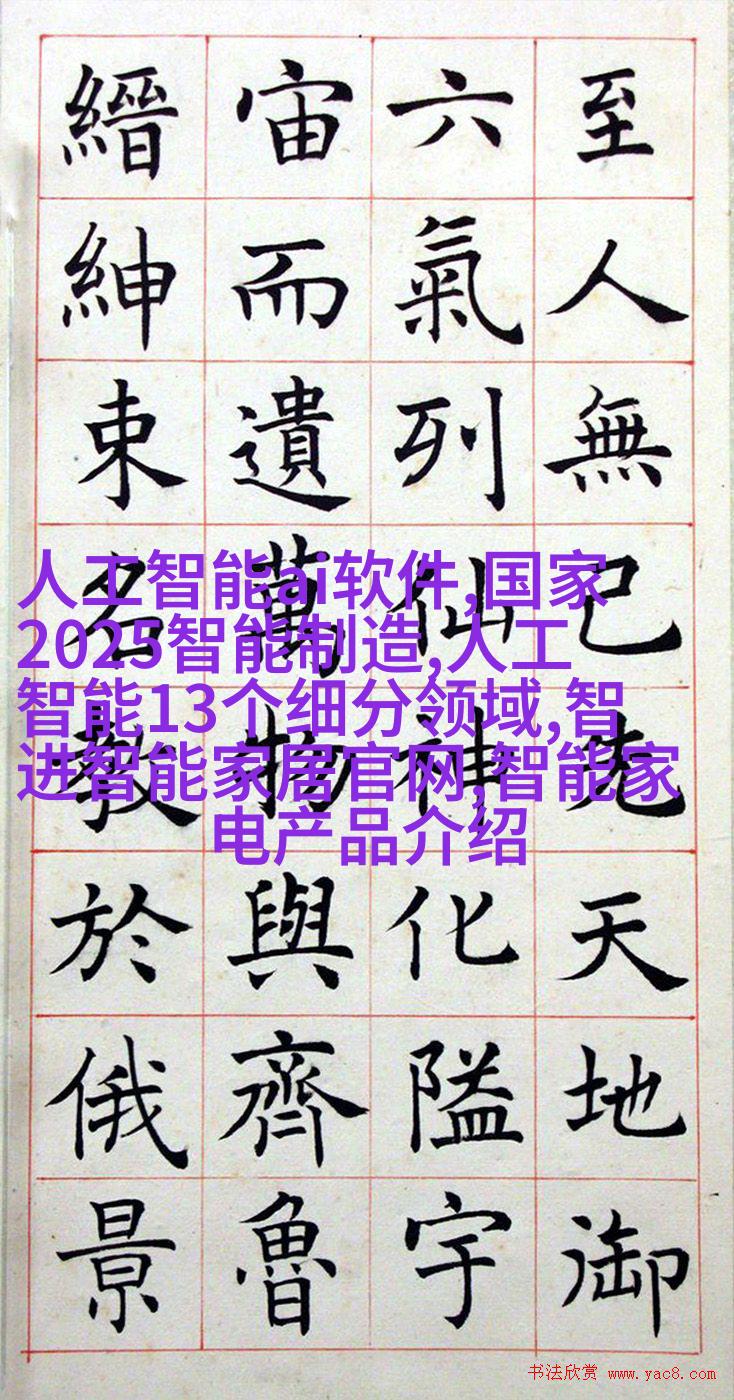 至人無已先天地御
六氣列仙神化隘宇
宙而遺萬物與齊魯
縉紳束名教於俄景
人工智能ai软件,国家
2025智能制造,人工
智能13个细分领域,智
进智能家居官网,智能家
电产品介绍
书法欣赏 www.yac8.com